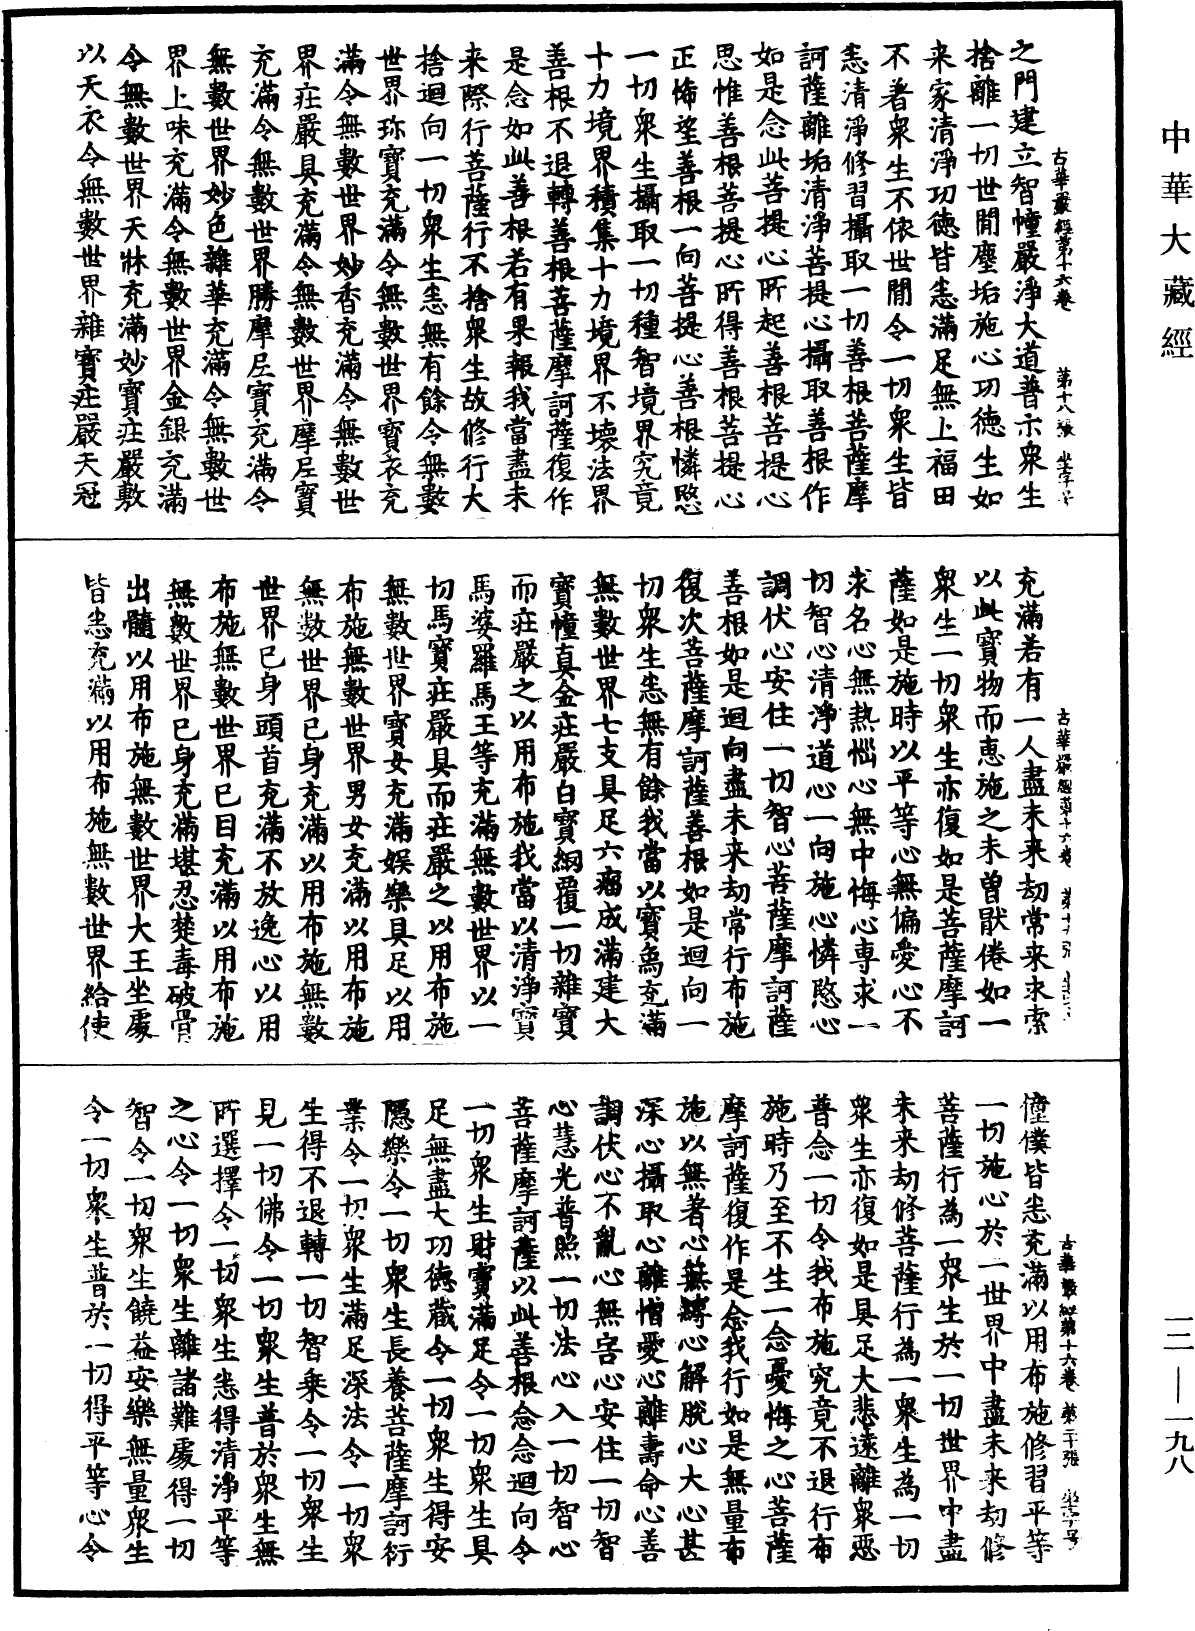 中華大藏經
古華嚴經第十六卷 第十八張 坐字号
之門建立智幢嚴淨大道普示眾生
捨離一切世閒塵垢施心功德生如
来家清淨功德皆悉滿足無上福田
不著眾生不依世閒令一切眾生皆
悉清淨修習攝取一切善根菩薩摩
訶薩離垢清淨菩提心攝取善根作
如是念此菩提心所起善根菩提心
思惟善根菩提心所得善根菩提心
正悕望善根一向菩提心善根憐愍
一切眾生攝取一切種智境界究竟
十力境界積集十力境界不壞法界
善根不退轉善根菩薩摩訶薩復作
是念如此善根若有果報我當盡未
来際行菩薩行不捨眾生故修行大
捨迴向一切眾生悉無有餘令無數
世界珎寶充滿令無數世界寶衣充
滿令無數世界妙香充滿令無數世
界莊嚴具充滿令無數世界摩尼寶
充滿令無數世界勝摩尼寶充滿令
無數世界妙色雜華充滿令無數世
界上味充滿令無數世界金銀充滿
令無數世界天牀充滿妙寶莊嚴敷
以天衣令無數世界雜寶莊嚴天冠
古華嚴經第十六卷 第十九張
充滿若有一人盡未来劫常来求索
以此寶物而惠施之未曾猒倦如一
眾生一切眾生亦復如是菩薩摩訶
薩如是施時以平等心無偏愛心不
求名心無熱惱心無中悔心専求一
切智心清淨道心一向施心憐愍心
調伏心安住一切智心菩薩摩訶薩
善根如是迴向盡未来劫常行布施
復次菩薩摩訶薩善根如是迴向一
切眾生悉無有餘我當以寶爲充滿
無數世界七支具足六瘤成滿建大
寶幢真金莊嚴白寶網覆一切雜寶
而莊嚴之以用布施我當以清淨寶
馬婆羅馬王等充滿無數世界以一
切馬寶莊嚴具而莊嚴之以用布施
無數世界寶女充滿娛樂具足以用
布施無數世界男女充滿以用布施
無數世界已身充滿以用布施無數
世界已身頭首充滿不放逸心以用
布施無數世界已目充滿以用布施
無數世界已身充滿堪忍楚毒破骨
出髓以用布施無數世界大王坐處
皆悉充滿以用布施無數世界給使
古華嚴經第十六卷 第二十張 坐字号
僮僕皆悉充滿以用布施修習平等
一切施心於一世界中盡未来劫修
菩薩行為一眾生於一切世界中盡
未来劫修菩薩行為一眾生為一切
眾生亦復如是具足大悲遠離眾惡
普念一切令我布施究竟不退行布
施時乃至不生一念憂悔之心菩薩
摩訶薩復作是念我行如是無量布
施以無著心無縛心解脫心大心甚
深心攝取心離憎愛心離壽命心善
調伏心不亂心無害心安住一切智
心慧光普照一切法心入一切智心
菩薩摩訶薩以此善根念念迴向令
一切眾生財寶滿足令一切眾生具
足無盡大功德藏令一切眾生得安
隱樂令一切眾生長養菩薩摩訶衍
業令一切眾生滿足深法令一切眾
生得不退轉一切智乗令一切眾生
見一切佛令一切眾生普於眾生無
所選擇令一切眾生悉得清淨平等
之心令一切眾生離諸難處得一切
智令一切眾生饒益安樂無量眾生
令一切眾生普於一切得平等心令
一二—一九八